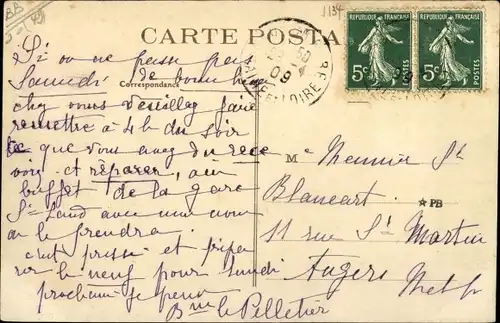 1134
CARTE POSTA
Correspondance
RÉPUBLIQUE FRANÇAISE
5c
RÉPUBLIQUE FRANÇAISE
5c
09
Si on ne passe pas
Samedi de bonne heure
chez vous veuillez faire
remettre à 4 h du soir
ce que vous avez du rece
voir et réparer, au
buffet de la gare
St Laud avec mon nom
on le prendra
c'est pressé et prépa
rer le neuf pour lundi
prochain je peux
Bne le Pelletier
Mr Meunier St
Blancart
★ PB
11 rue St Martin
Angers